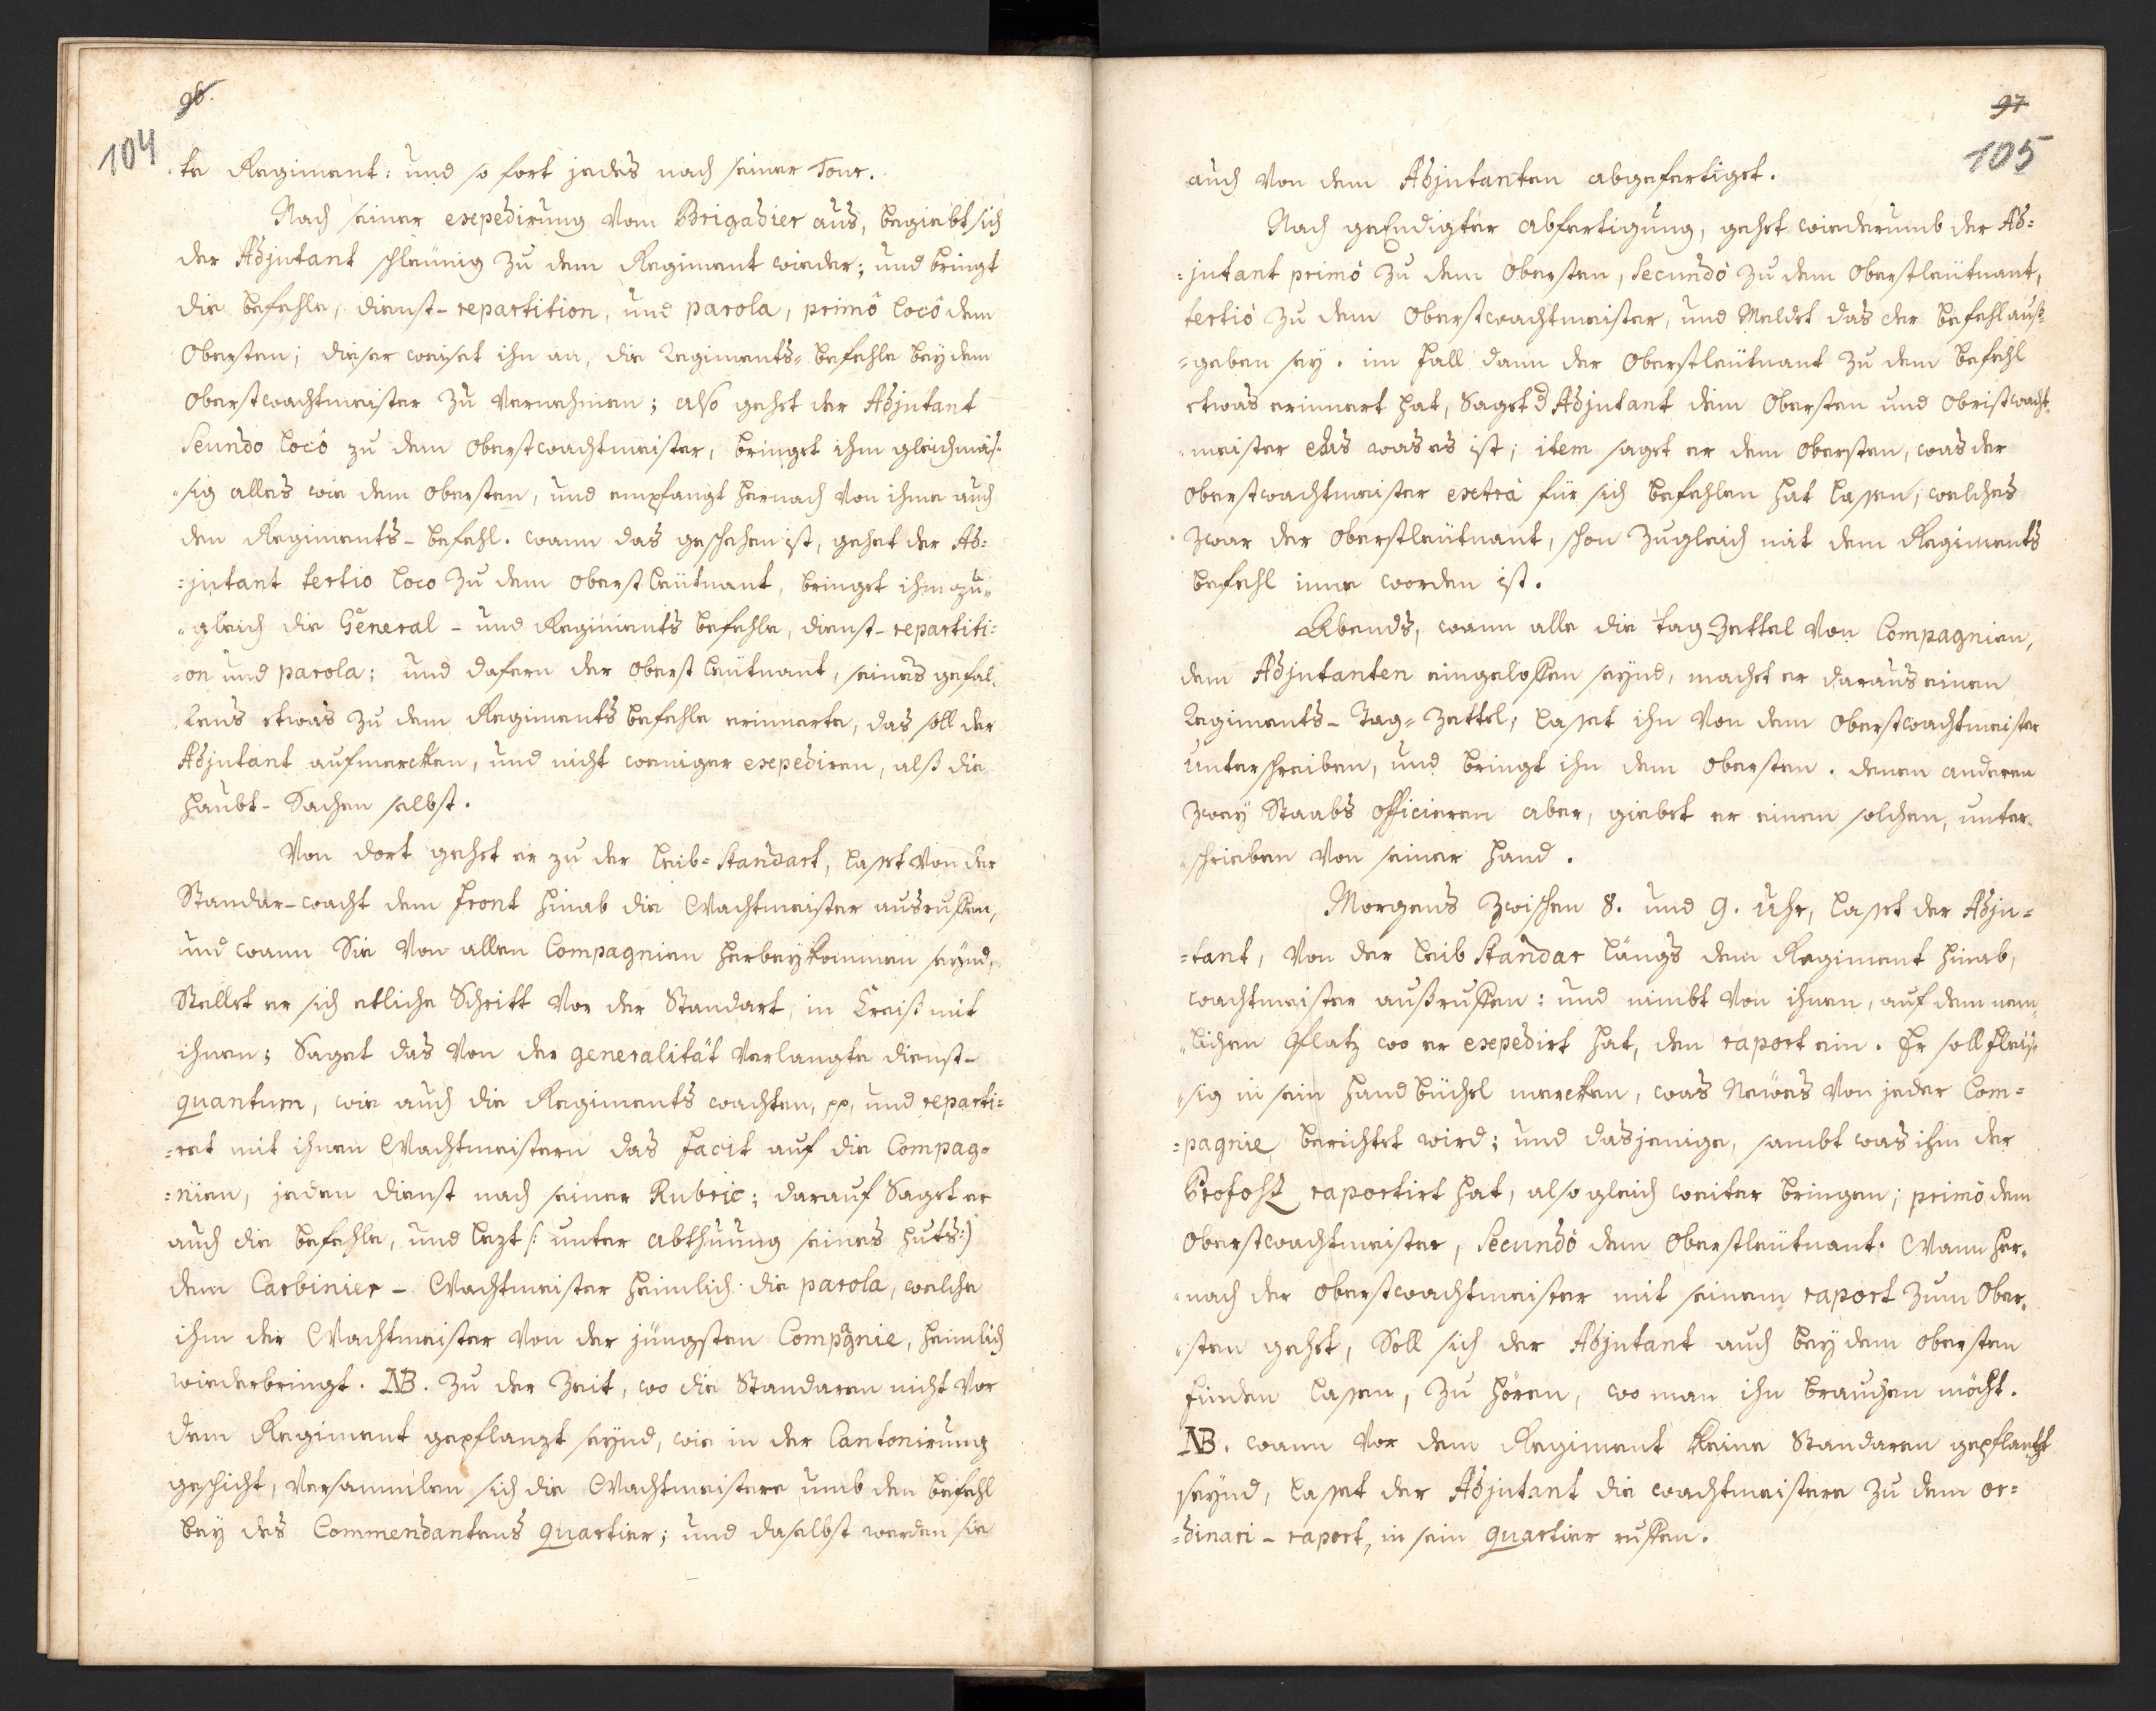 96.
104
te Regiment: und so fort jedes nach seiner Tour.
Nach seiner expedirung vom Brigadier aus, begiebt sich
der Adjutant schleünig zu dem Regiment wieder; und bringt
die befehle, dienst-repartition, und parola, primô locô dem
Obersten; dieser weiset ihn an, die Regiments-befehle bey dem
Oberstwachtmeister zu vernehmen; also gehet der Adjutant
Seundo locô zu dem Oberstwachtmeister, bringet ihm gleichmäs-
sig alles wie dem Obersten, und empfangt hernach von ihme auch
den Regiments-befehl. wann das geschehen ist, gehet der Ad=
=jutant tertio loco zu dem Oberstleütnant, bringet ihm zu=
=gleich die General- und Regiments befehle, dienst-repartiti=
=on und parola; und dafern der Oberst leütnant, seines gefal=
lens etwas zu dem Regiments befehle erinnerte, das soll der
Adjutant aufmercken, und nicht weniger expediren, alß die
haubt-Sachen selbst.
Von dort gehet er zu der Leib=Standart, lasset von der
Standar-wacht dem front hinab die Wachtmeister ausruffen,
und wann Sie von allen Compagnien herbeykommen seynd,
Stellet er sich etliche Schritt vor der Standart, in Creiß mit
ihnen; Saget das von der generalität verlangte dienst-
quantum, wie auch die Regiments wachten, pp, und reparti=
=ret mit ihnen Wachtmeistern das facit auf die Compag=
=nien, jeden dienst nach seiner Rubric; darauf Saget er
auch die befehle, und lezt /: unter abthuung seines huts:/
dem Carbinier-Wachtmeister heimlich die parola, welche
ihm der Wachtmeister von der jüngsten Compagnie, heimlich
wiederbringt. NB. zu der Zeit, wo die Standaren nicht vor
dem Regiment gepflanzt seynd, wie in der Cantonirung
geschicht, versammlen sich die Wachtmeistere umb den befehl
bey des Commendantens quartier; und daselbst werden sie
97
105
auch von dem Adjutanten abgefertiget.
Nach geendigter abfertigung, gehet wiederumb der Ad=
=jutant primô zu dem Obersten, Secundô zu dem Oberstleütnant,
tertiô zu dem Oberstwachtmeister, und Meldet das der befehl auß=
=geben sey. im fall dann der Oberstleütnant zu dem befehl
etwas erinnert hat, Saget d Adjutant dem Obersten und Obristwacht=
=meister was es ist; item saget er dem Obersten, was der
Oberstwachtmeister extrà für sich befehlen hat lassen, welches
zwar der Oberstleütnant, schon zugleich mit dem Regiments
befehl inne worden ist.
Abends, wann alle die tag Zettel von Compagnien,
dem Adjutanten eingeloffen seynd, machet er daraus einen
Regiments-Tag=Zettel, lasset ihn von dem Oberstwachtmeister
Unterschreiben, und bringt ihn dem Obersten. denen anderen
zwey Staabs officieren aber, giebet er einen solchen, unter=
schrieben von seiner hand.
Morgens zwischen 8. und 9. Uhr, lasset der Adju=
=tant, von der leib Standar längs dem Regiment hinab,
wachtmeister außruffen: und nimbt von ihnen, auf dem nem=
lichen Platz wo er expedirt hat, den raport ein. Er soll fleis=
sig in sein handbüchel mercken, was Neües von jeder Com=
=pagnie berichtet wird; und dasjenige, sambt was ihm der
Profoß raportirt hat, also gleich weiter bringen; primô dem
Oberstwachtmeister, Secundô dem Oberstleütnant. Wann her=
nach der Oberstwachtmeister mit seinem raport zum Ober=
sten gehet, Soll sich der Adjutant auch bey dem Obersten
finden lassen, zu hören, wo man ihn brauchen möcht.
NB. wann vor dem Regiment keine Standaren gepflantzt
seynd, lasset der Adjutant die wachtmeistere zu dem or=
=dinari-raport, in sein quartier ruffen.